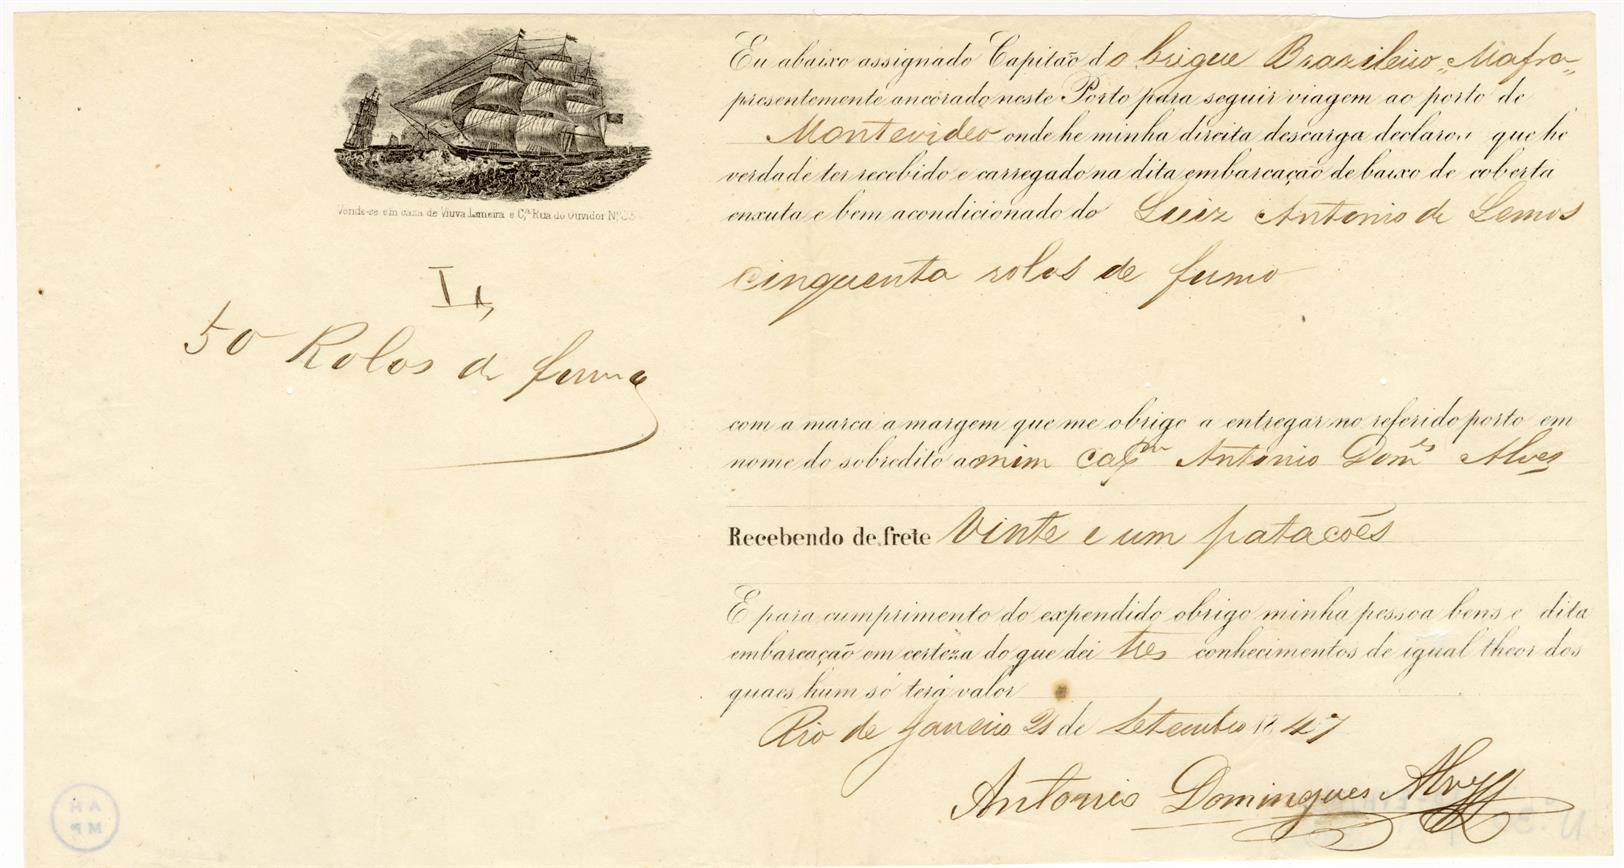 Eu abaixo assignado Capitão do brigue Brazileiro „Mafra„
presentemente ancorado neste Porto para seguir viagem ao porto de
Montevideo onde he minha direita descarga declaro que he
verdade ter recebido e carregado na dita embarcação de baixo de coberta
enxuta e bem acondicionado do Luiz Antonio de Lemos
cinquenta rolos de fumo
Vende-se em caza de Viuva Lameira e C.ª Rua do Ouvidor N.º
50 Rolos de fumo
com a marca a margem que me obrigo a entregar no referido porto em
nome do sobredito a mim Antonio Dom.es Alves
Recebendo de frete Vinte e um patacões
E para cumprimento do expendido obrigo minha pessoa bens e dita
embarcação em certeza do que dei tres conhecimentos de igual theor dos
quaes hum só terá valor
Rio de Janeiro 21 de Setembro 1847
Antonio Domingues Alves
AH
MP